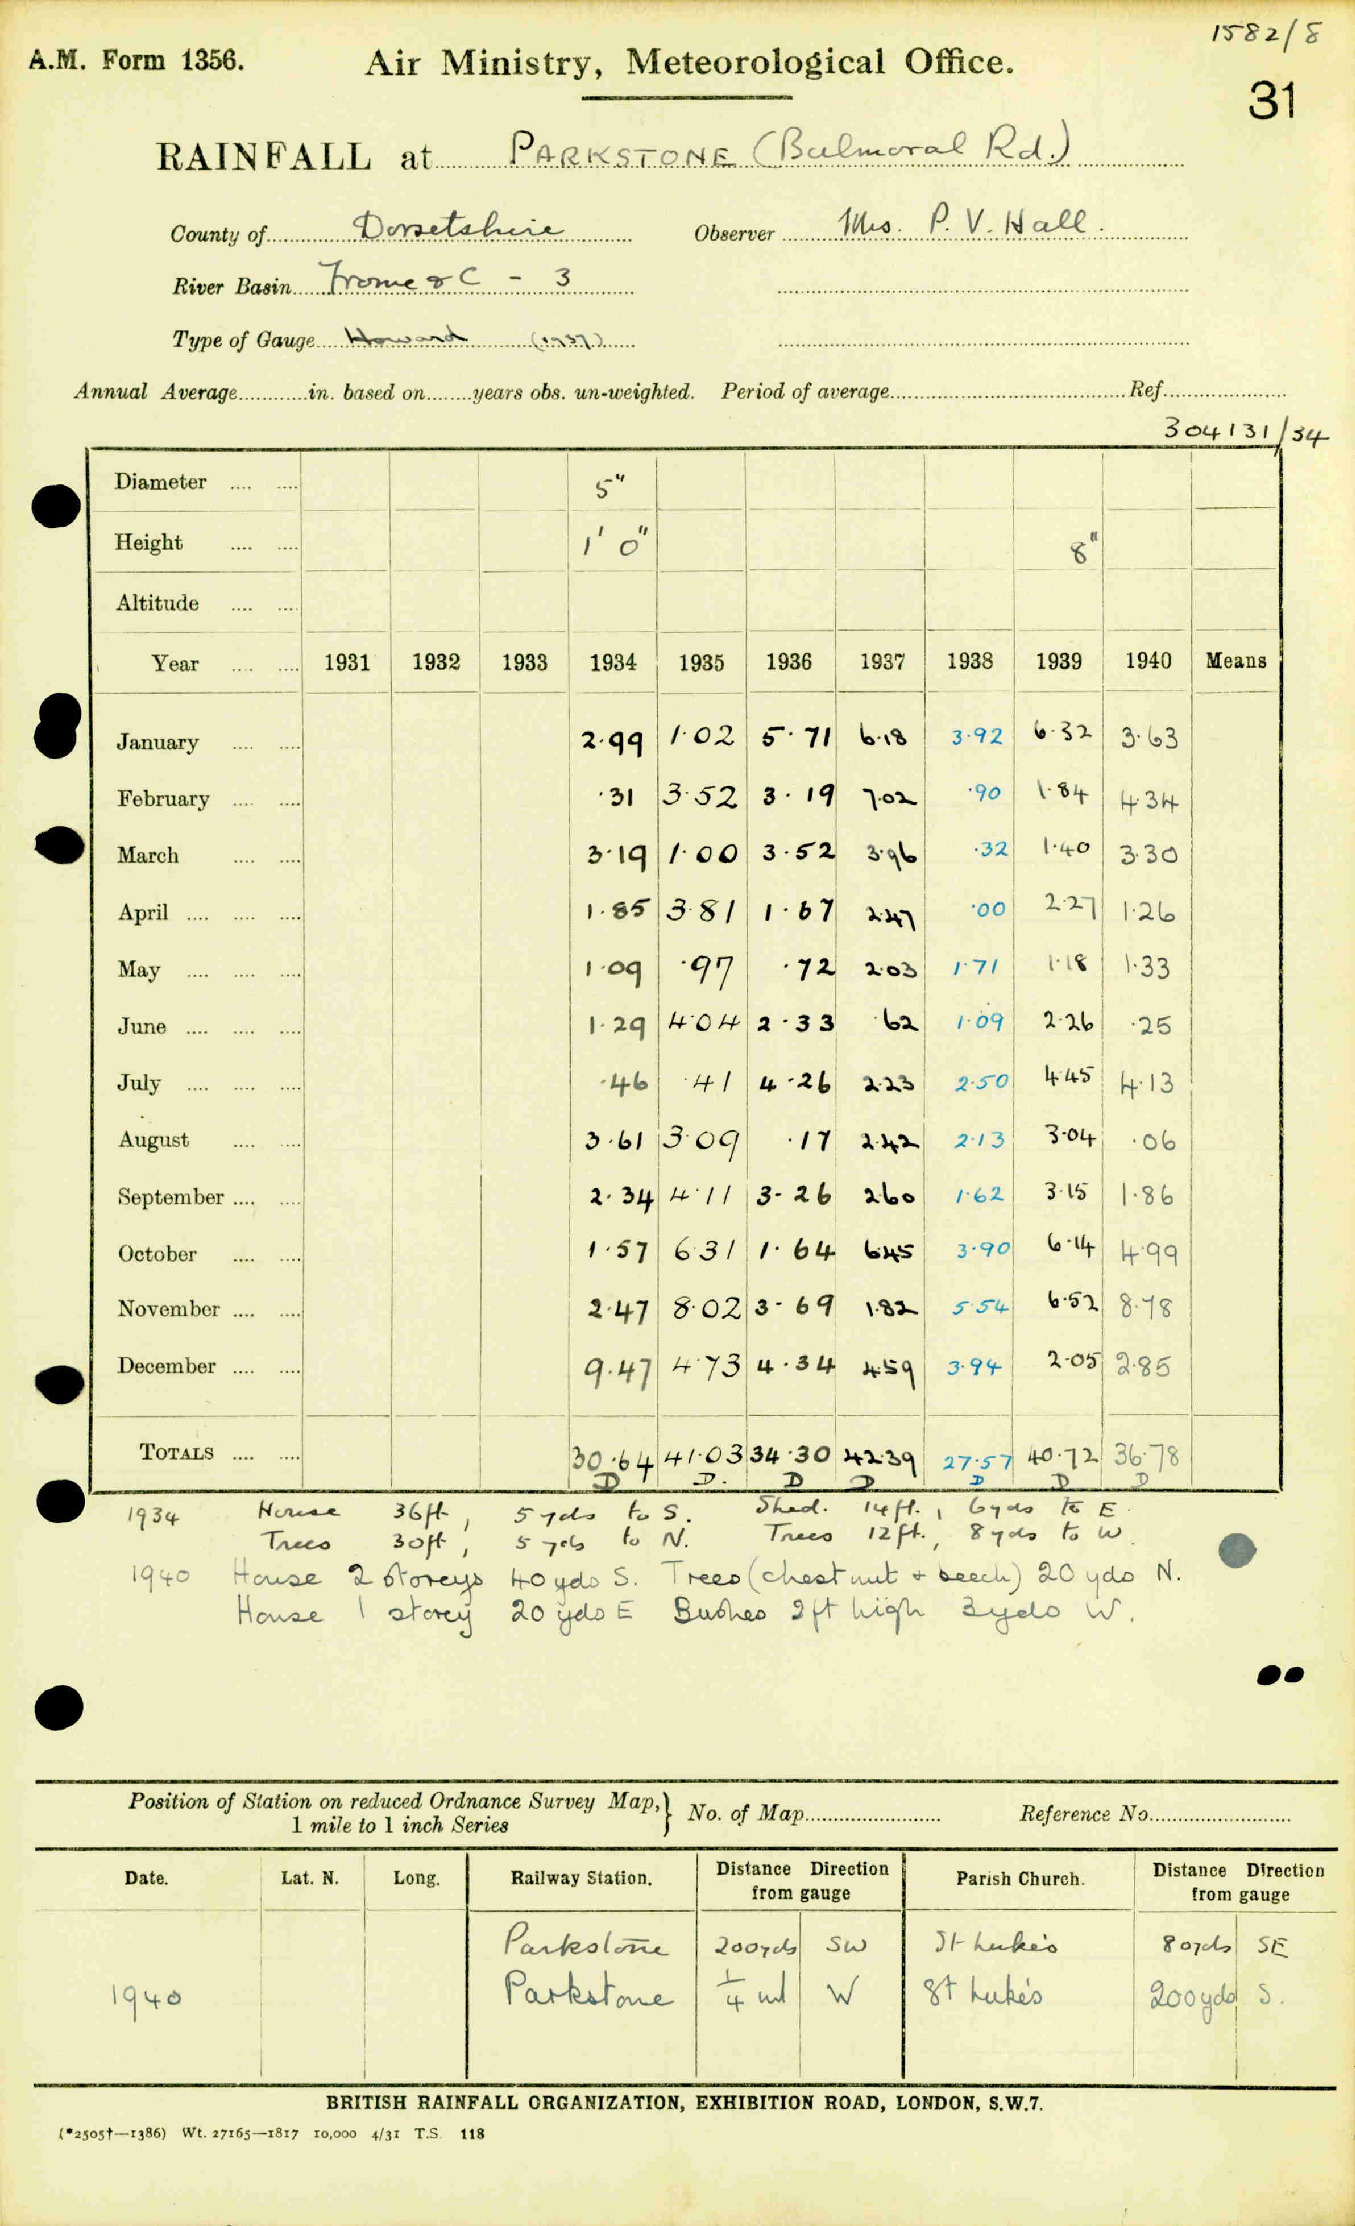 1582/8
A.M. Form 1356.
Air Ministry, Meteorological Office.
31
RAINFALL at PARKSTONE (Balmoral Rd.)
County of Dorsetshire Observer Mrs. P. V. Hall.
River Basin Frome &C - 3
Type of Gauge Howard (1937)
Annual Average in. based on years obs. un-weighted. Period of average Ref.
304131/34
Diameter 5"
Height 1' 0" 8"
Altitude
Year 1931 1932 1933 1934 1935 1936 1937 1938 1939 1940 Means
January 2.99 1.02 5.71 6.18 3.92 6.32 3.63
February .31 3.52 3.19 7.02 .90 1.84 4.34
March 3.19 1.00 3.52 3.96 .32 1.40 3.30
April 1.85 3.81 1.67 2.47 .00 2.27 1.26
May 1.09 .97 .72 2.03 1.71 1.18 1.33
June 1.29 4.04 2.33 .62 1.09 2.26 .25
July .46 .41 4.26 2.23 2.50 4.45 4.13
August 3.61 3.09 .17 2.42 2.13 3.04 .06
September 2.34 4.11 3.26 2.60 1.62 3.15 1.86
October 1.57 6.31 1.64 6.45 3.90 6.14 4.99
November 2.47 8.02 3.69 1.82 5.54 6.52 8.78
December 9.47 4.73 4.34 4.59 3.94 2.05 2.85
TOTALS 30.64 41.03 34.30 42.39 27.57 40.72 36.78
D D. D D D D D
1934 House 36ft, 5 yds to S. Shed. 14ft., 6yds to E.
Trees 30ft, 5 yds to N. Trees 12ft., 8 yds to W.
1940 House 2 storeys 40 yds S. Trees (chestnut + beech) 20 yds N.
House 1 storey 20 yds E Bushes 2ft high 3yds W.
Position of Station on reduced Ordnance Survey Map,} No. of Map Reference No.
1 mile to 1 inch Series
Date. Lat. N. Long. Railway Station. Distance Direction from gauge Parish Church. Distance Direction from gauge
Parkstone 200yds SW St Luke's 80yds SE
1940 Parkstone 1/4 ml W St Luke's 200yds S.
BRITISH RAINFALL ORGANIZATION, EXHIBITION ROAD, LONDON, S.W.7.
(*2505†—1386) Wt. 27165—1817 10,000 4/31 T.S. 118